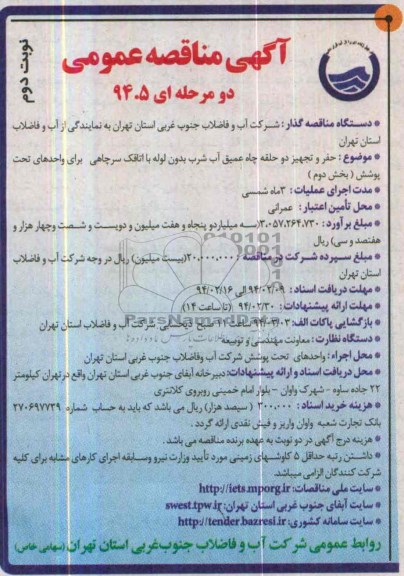 نوبت دوم
آگهی مناقصه عمومی
دو مرحله ای ۹۴.۵
• دستگاه مناقصه گذار: شرکت آب و فاضلاب جنوب غربی استان تهران به نمایندگی از آب و فاضلاب
استان تهران
• موضوع: حفر و تجهیز دو حلقه چاه عمیق آب شرب بدون لوله با اتاقک سرچاهی برای واحدهای تحت
پوشش (بخش دوم)
• مدت اجرای عملیات: ۳ماه شمسی
• محل تأمین اعتبار: عمرانی
• مبلغ برآورد: ۳.۰۵۷.۲۶۴.۷۳۰(سه میلیاردو پنجاه و هفت میلیون و دویست و شصت وچهار هزار و
هفتصد و سی) ریال
• مبلغ سپرده شرکت در مناقصه: ۲۰.۰۰۰.۰۰۰(بیست میلیون) ریال در وجه شرکت آب و فاضلاب
استان تهران
• مهلت دریافت اسناد: ۹۴/۰۲/۰۹ الی ۹۴/۰۲/۱۶
• مهلت ارائه پیشنهادات: ۹۴/۰۲/۳۰ (تا ساعت ۱۴)
• بازگشایی پاکات الف: ۹۴/۰۳/۰۳ ساعت ۹ صبح شرکت آب و فاضلاب استان تهران
• دستگاه نظارت: معاونت مهندسی و توسعه
• محل اجراء: واحدهای تحت پوشش شرکت آب وفاضلاب جنوب غربی استان تهران
• محل دریافت اسناد و ارائه پیشنهادات: دبیرخانه آبفای جنوب غربی استان تهران واقع در تهران کیلومتر
۲۲ جاده ساوه - شهرک واوان - بلوار امام خمینی روبروی کلانتری
• هزینه خرید اسناد: ۳۰۰.۰۰۰ (سیصد هزار) ریال می باشد که باید به حساب شماره ۲۷۰۶۹۷۷۳۹
بانک تجارت شعبه واوان واریز و فیش نقدی ارائه گردد.
• هزینه درج آگهی در دو نوبت به عهده برنده مناقصه می باشد.
• داشتن رتبه حداقل ۵ کاوشهای زمینی مورد تأیید وزارت نیرو وسابقه اجرای کارهای مشابه برای کلیه
شرکت کنندگان الزامی میباشد.
• سایت ملی مناقصات: http://iets.mporg.ir
• سایت آبفای جنوب غربی استان تهران: swest.tpw.ir
• سایت سامانه کشوری: http://tender.bazresi.ir
روابط عمومی شرکت آب و فاضلاب جنوب غربی استان تهران (سهامی خاص)
ParsNamadData